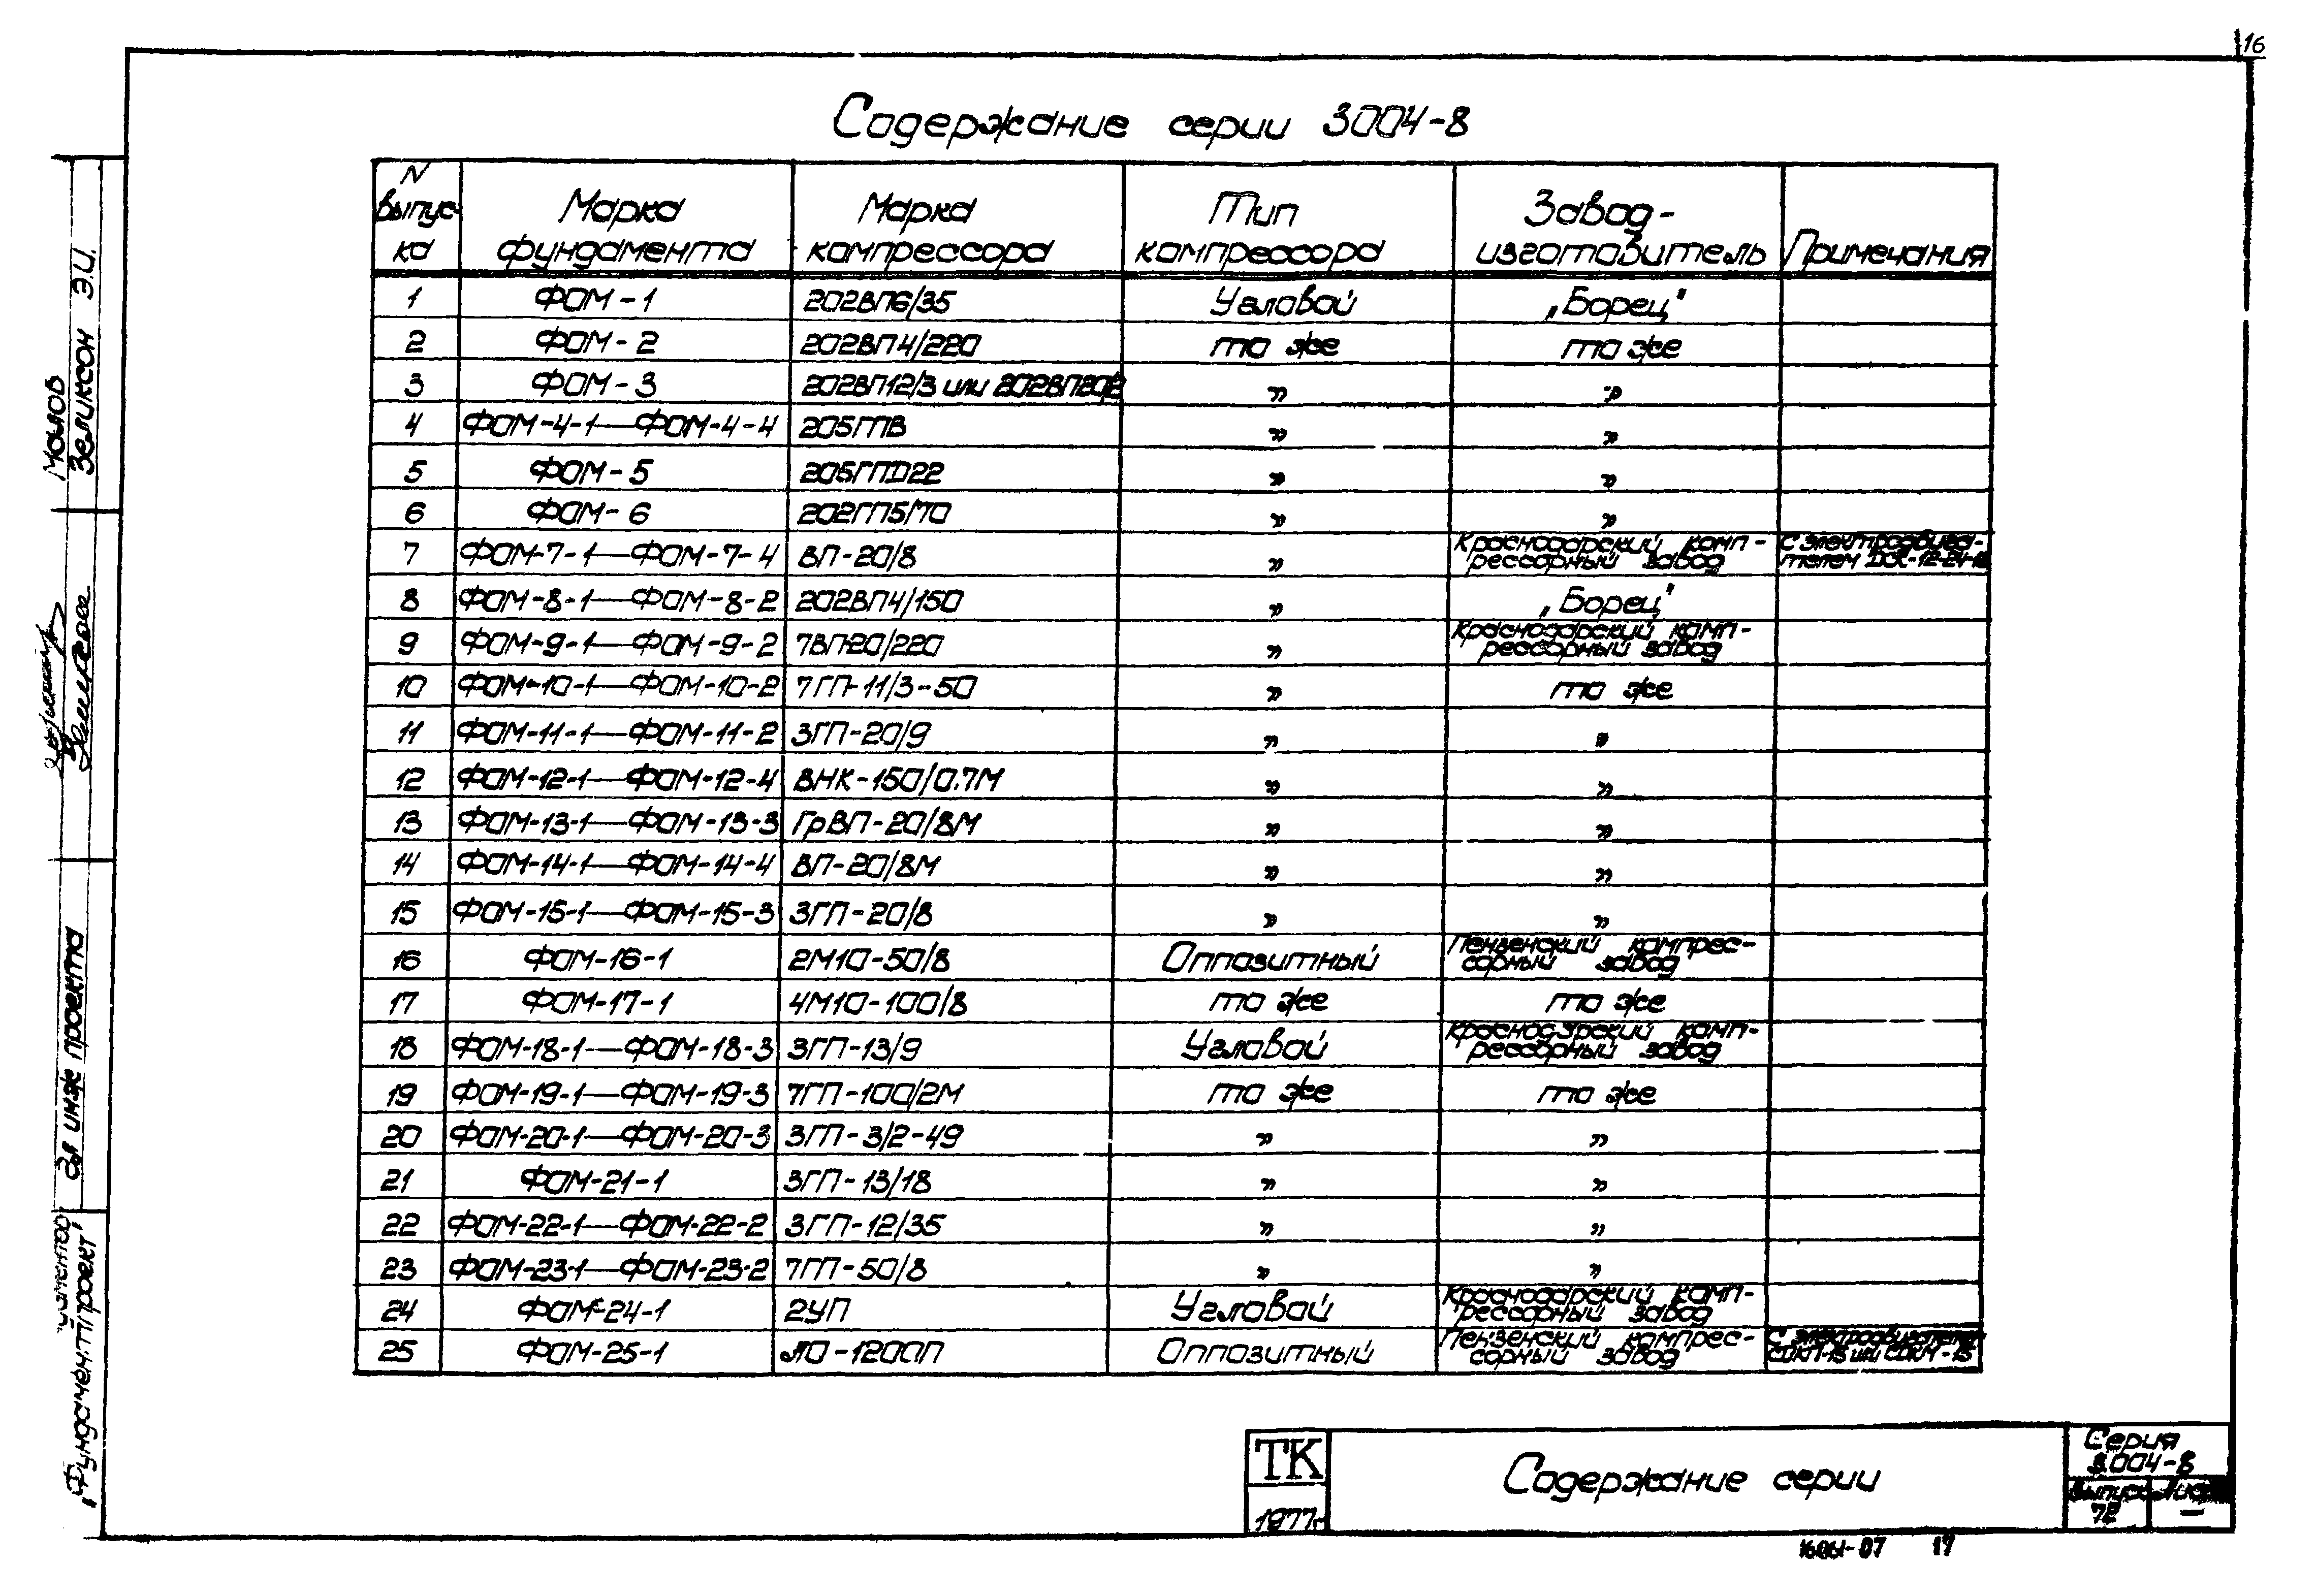 16
Содержание серии 3004-8
N выпус-ка | Марка фундамента | Марка компрессора | Тип компрессора | Завод-изготовитель | Примечания
1 ФОМ-1 202ВП6/35 Угловой „Борец"
2 ФОМ-2 202ВП4/220 то же то же
3 ФОМ-3 202ВП12/3 или 202ВП20/2 „ „
4 ФОМ-4-1—ФОМ-4-4 205ГПВ „ „
5 ФОМ-5 „ „
6 ФОМ-6 „ „
7 ФОМ-7-1—ФОМ-7-4 ВП-20/8 „ Краснодарский комп-рессорный завод С электродвига-телем
8 ФОМ-8-1—ФОМ-8-2 202ВП4/150 „ „Борец"
9 ФОМ-9-1—ФОМ-9-2 7ВП-20/220 „ Краснодарский комп-рессорный завод
10 ФОМ-10-1—ФОМ-10-2 7ГП-11/3-50 „ то же
11 ФОМ-11-1—ФОМ-11-2 3ГП-20/9 „ „
12 ФОМ-12-1—ФОМ-12-4 ВНК-150/0.7М „ „
13 ФОМ-13-1—ФОМ-13-3 ГрВП-20/8М „ „
14 ФОМ-14-1—ФОМ-14-4 ВП-20/8М „ „
15 ФОМ-15-1—ФОМ-15-3 3ГП-20/8 „ „
16 ФОМ-16-1 2М10-50/8 Оппозитный Пензенский компрес-сорный завод
17 ФОМ-17-1 4М10-100/8 то же то же
18 ФОМ-18-1—ФОМ-18-3 3ГП-13/9 Угловой Краснодарский комп-рессорный завод
19 ФОМ-19-1—ФОМ-19-3 7ГП-100/2М то же то же
20 ФОМ-20-1—ФОМ-20-3 3ГП-3/2-49 „ „
21 ФОМ-21-1 3ГП-13/18 „ „
22 ФОМ-22-1—ФОМ-22-2 3ГП-12/35 „ „
23 ФОМ-23-1—ФОМ-23-2 7ГП-50/8 „ „
24 ФОМ-24-1 2УП Угловой Краснодарский комп-рессорный завод
25 ФОМ-25-1 Оппозитный Пензенский компрес-сорный завод С электродвигателем
Зеликсон Э.И.
инж проекта
„Фундаментпроект"
ТК
1977г
Содержание серии
Серия
3.004-8
Выпуск Лист
—